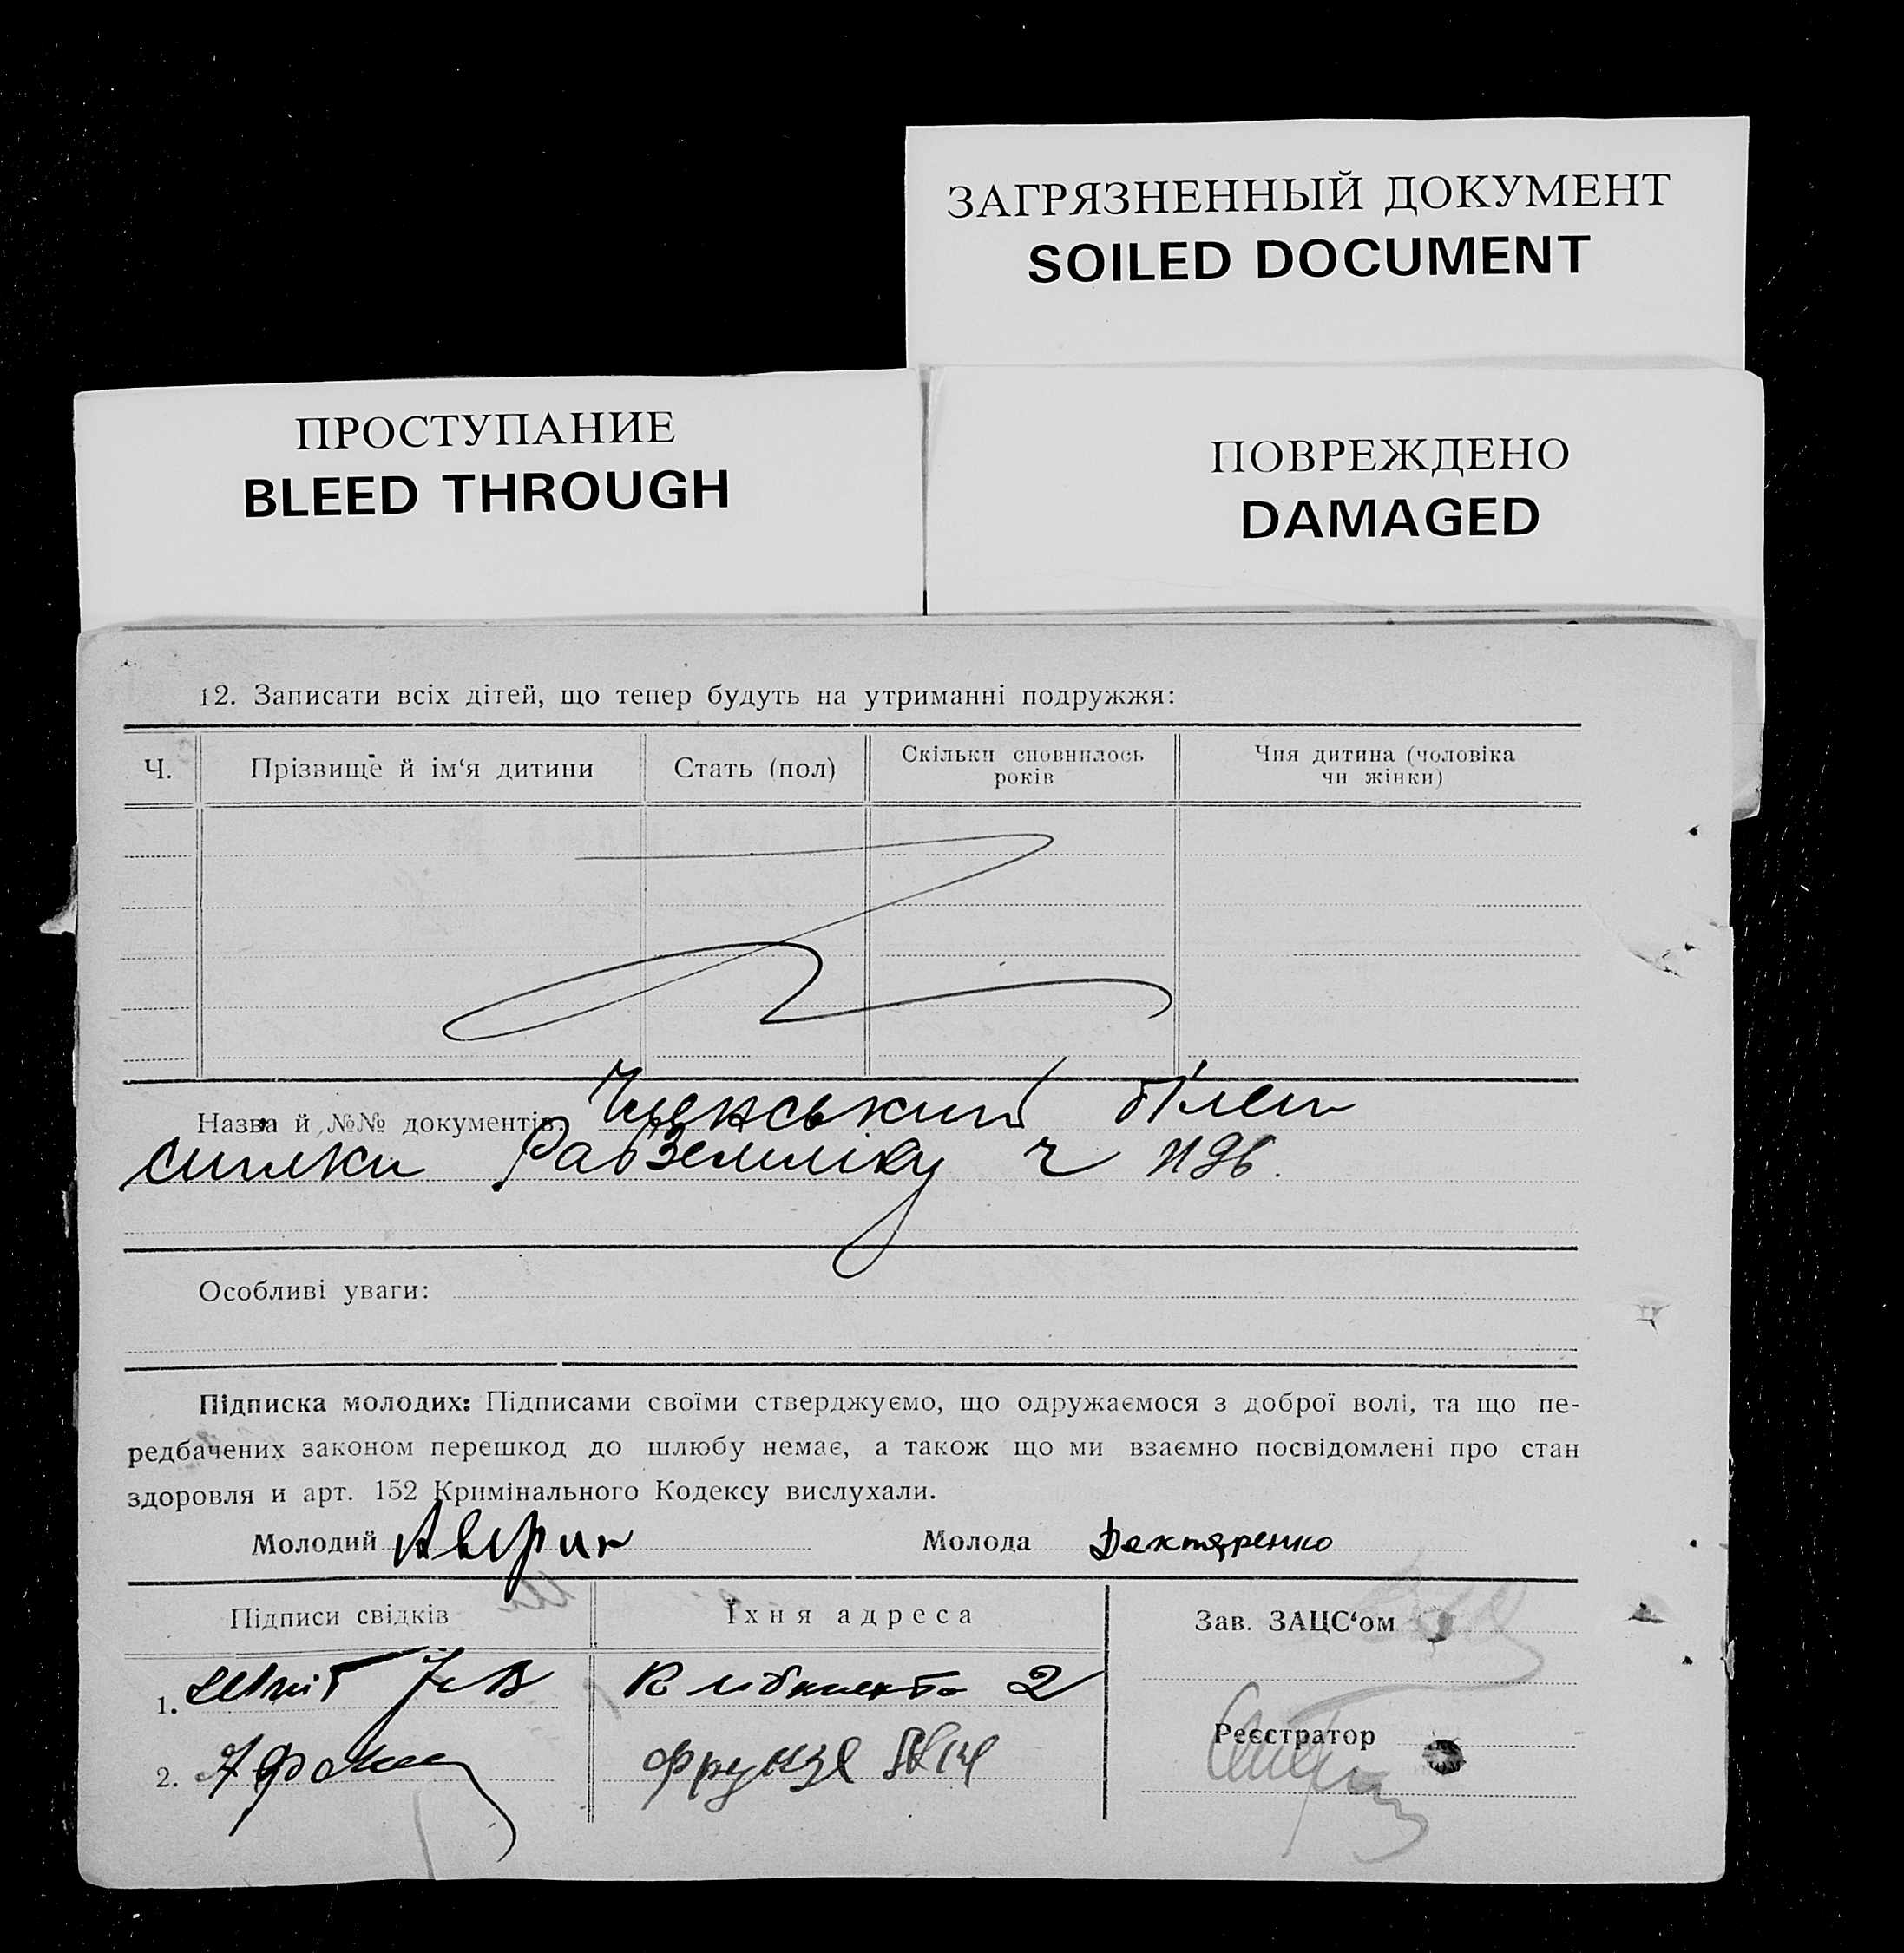 ЗАГРЯЗНЕННЫЙ ДОКУМЕНТ
SOILED DOCUMENT
ПРОСТУПАНИЕ
BLEED THROUGH
ПОВРЕЖДЕНО
DAMAGED
12. Записати всіх дітей, що тепер будуть на утриманні подружжя:
Ч. Прізвище й ім‘я дитини Стать (пол) Скільки сповнилось років Чия дитина (чоловіка чи жінки)
Назва й №№ документів: Членський білет
спілки
Особливі уваги:
Підписка молодих: Підписами своїми стверджуємо, що одружаємося з доброї волі, та що пе-
редбачених законом перешкод до шлюбу немає, а також що ми взаємно посвідомлені про стан
здоровля и арт. 152 Кримінального Кодексу вислухали.
Молодий Молода Дехтяренко
Підписи свідків Їхня адреса Зав. ЗАЦС‘ом
1. К Лібкнехта 2
Реєстратор
2. Фрунзе